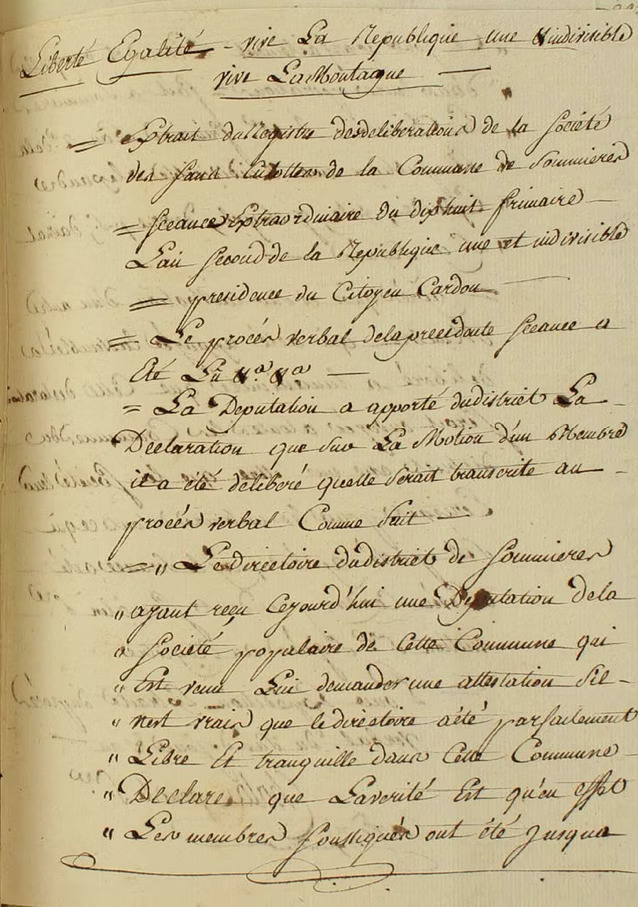 Liberté Egalité - vive La Republique une & indivisible
vive La Montagne —
= Extrait du Registre des deliberations de la Société
des Sans Culottes de la Commune de Sommieres
= Seance Extraordinaire du dixhuit frimaire —
L'an Second de la Republique une et indivisible
= presidence du Citoyen Cardon —
= Le procés verbal de la precedente seance a
Eté Lu &a. &a —
= La Deputation a apporté du district La —
Declaration que sur La Motion d'un Membre
il a été deliberé quelle serait transcrite au —
procés verbal Comme suit —
= „ Le directoire du district de Sommieres
„ ayant reçu cejourd'hui une Deputation de la
„ Société populaire de Cette Commune qui
„ Est venue Lui demander une attestation s'il —
„ n'est vrais que le directoire a été parfaitement
„ Libre Et tranquille dans Cette Commune —
„ Declare que La verité Est qu'en effet
„ Les membres soussignés ont été jusqua